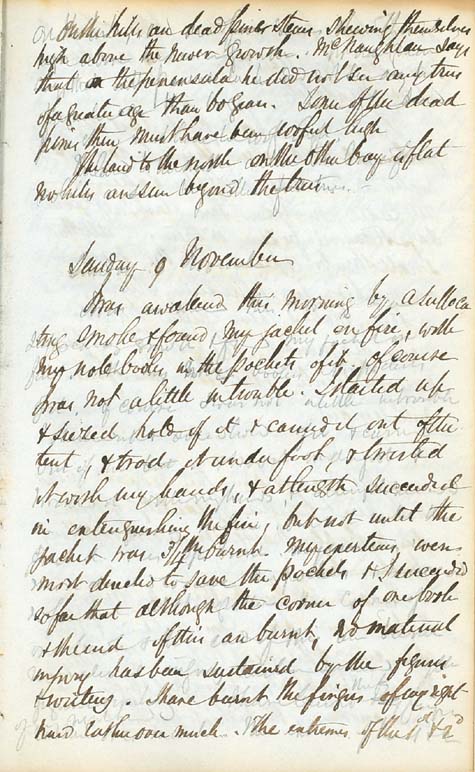 On the hills are dead pines stems shewing themselves
high above the newer growth. McNaughtan says
that in the peninsula he did not see any trees
of a greater age than 60 years. Some of the dead
pines then must have been 100 feet high
The land to the north on the other bay is flat
no hills are seen beyond the trees.
Sunday 9 November
I was awakened this morning by a suffoca
ting smoke & found my jacket on fire, with
my note books in the pockets of it of course
I was not a little in trouble. I started up
& seized hold of it & carried it out of the
tent, & trod it under foot, & twisted
it with my hands, & at length succeeded
in extinguishing the fire, but not until the
jacket was 3/4ths burnt. My exertions were
most directed to save the pockets & I succeeded
so far that although the corner of one book
& the end of this are burnt, no material
injury has been sustained by the figures
& writing. I have burnt the fingers of my right
hand rather over much. The extremes of the 1st & 2d